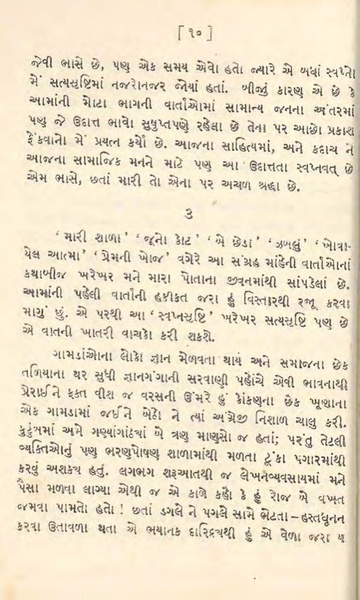 [ ૧૦ ]
જેવી ભાસે છે, પણ એક સમય એવો હતો જ્યારે એ બધાં સ્વપ્નો
મેં સત્યસૃષ્ટિમાં નજરોનજર જોયાં હતાં. બીજું કારણ એ છે કે
આમાંની મોટા ભાગની વાર્તાઓમાં સામાન્ય જનના અંતરમાં
પણ જે ઉદાત્ત ભાવો સુષુપ્તપણે રહેલા છે તેના પર આછો પ્રકાશ
ફેંકવાનો મેં પ્રયત્ન કર્યો છે. આજના સાહિત્યમાં, અને કદાચ ને
આજના સામાજિક મનને માટે પણ આ ઉદાત્તતા સ્વપ્નવત્ છે
એમ ભાસે, છતાં મારી તો એના પર અચળ શ્રદ્ધા છે.
૩
‘મારી શાળા’ ‘જૂનો કોટ’ ‘બે છેડા’ ‘ઝબલું’ ‘ખોવા-
યેલ આત્મા’ ‘પ્રેમની ખોજ’ વગેરે આ સંગ્રહ માંહેની વાર્તાઓનાં
કથાબીજ ખરેખર મને મારા પોતાના જીવનમાંથી સાંપડેલાં છે.
આમાંની પહેલી વાર્તાની હકીકત જરા હું વિસ્તારથી રજૂ કરવા
માગું છું. એ પરથી આ ‘સ્વપ્નસૃષ્ટિ’ ખરેખર સત્યસૃષ્ટિ પણ છે
એ વાતની ખાતરી વાચકો કરી શકશે.
ગામડાંઓના લોકો જ્ઞાન મેળવતા થાય અને સમાજના છેક
તળિયાના થર સુધી જ્ઞાનગંગાની સરવાણી પહોંચે એવી ભાવનાથી
પ્રેરાઈને ફક્ત વીશ જ વરસની ઉંમરે હું કોંકણના છેક ખૂણાના
એક ગામડામાં જઈને બેઠો ને ત્યાં અંગ્રેજી નિશાળ ચાલુ કરી.
કુટુંબમાં અમે ગણ્યાંગાંઠ્યાં બે ત્રણ માણસો જ હતાં; પરંતુ તેટલી
વ્યક્તિઓનું પણ ભરણપોષણ શાળામાંથી મળતા ટૂંકા પગારમાંથી
કરવું અશક્ય હતું. લગભગ શરૂઆતથી જ લેખનવ્યવસાયમાં મને
પૈસા મળવા લાગ્યા એથી જ એ કાળે કહો કે હું રોજ બે વખત
જમવા પામતો હતો ! છતાં ડગલે ને પગલે સામે ભેટતા – હસ્તધૂનન
કરવા ઉતાવળા થતા એ ભયાનક દારિદ્રથી હું એ વેળા જરા ય